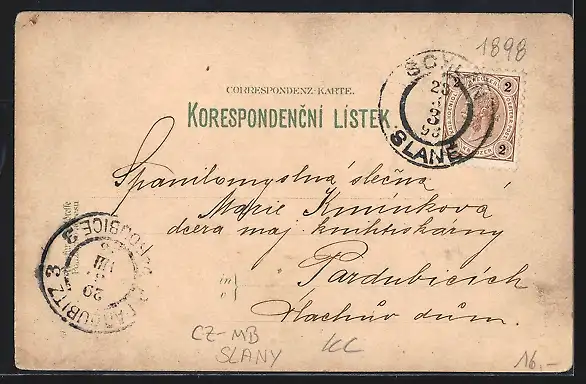 1898
CORRESPONDENZ-KARTE.
KORESPONDENČNÍ LÍSTEK.
2 2
2 2
SLANÉ
Spanilomyslná slečna
Marie Kmínková
dcera maj. knihtiskárny
in
v
Pardubicích
Vlachův dům.
PARDUBITZ 3
PARDUBICE 3
29
VIII
CZ-MB
SLANY
KC
16.-